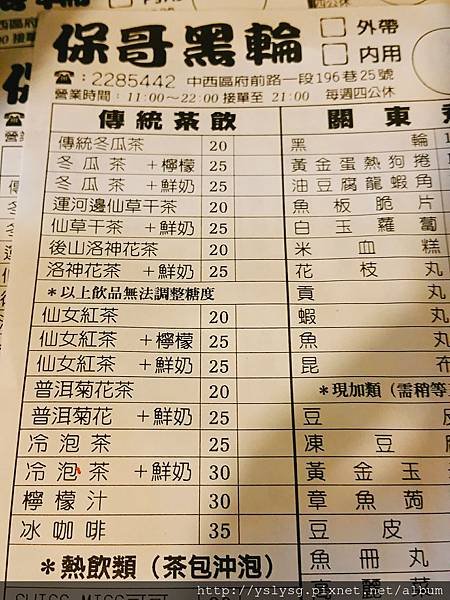 保哥黑輪 □外帶
□內用
☎:2285442 中西區府前路一段196巷25號
營業時間:11:00~22:00 接單至 21:00 每週四公休
傳統茶飲
傳統冬瓜茶 20
冬瓜茶 +檸檬 25
冬瓜茶 +鮮奶 25
運河邊仙草干茶 20
仙草干茶 +鮮奶 25
後山洛神花茶 20
洛神花茶 +鮮奶 25
*以上飲品無法調整糖度
仙女紅茶 20
仙女紅茶 +檸檬 25
仙女紅茶 +鮮奶 25
普洱菊花茶 20
普洱菊花 +鮮奶 25
冷泡茶 25
冷泡茶 +鮮奶 30
檸檬汁 30
冰咖啡 35
*熱飲類(茶包沖泡)
關東
黑輪
黃金蛋熱狗捲
油豆腐龍蝦角
魚板脆片
白玉蘿蔔
米血糕
花枝丸
貢丸
蝦丸
魚丸
昆布
*現加類(需稍等
豆
凍豆
黃金玉
章魚蒟
豆皮
魚冊丸
高麗菜
http://yslysg.pixnet.net/album